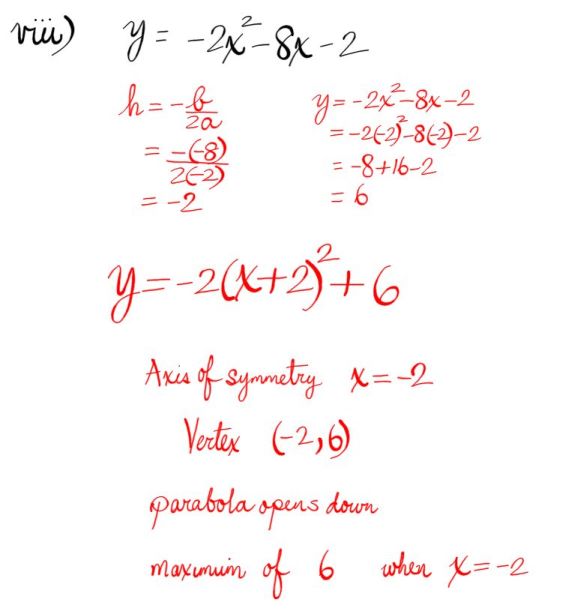 viii) y = -2x²-8x-2
h = -b/2a
= -(-8)/2(-2)
= -2
y = -2x²-8x-2
= -2(-2)²-8(-2)-2
= -8+16-2
= 6
y = -2(x+2)²+6
Axis of symmetry x = -2
Vertex (-2,6)
parabola opens down
maximum of 6 when x = -2